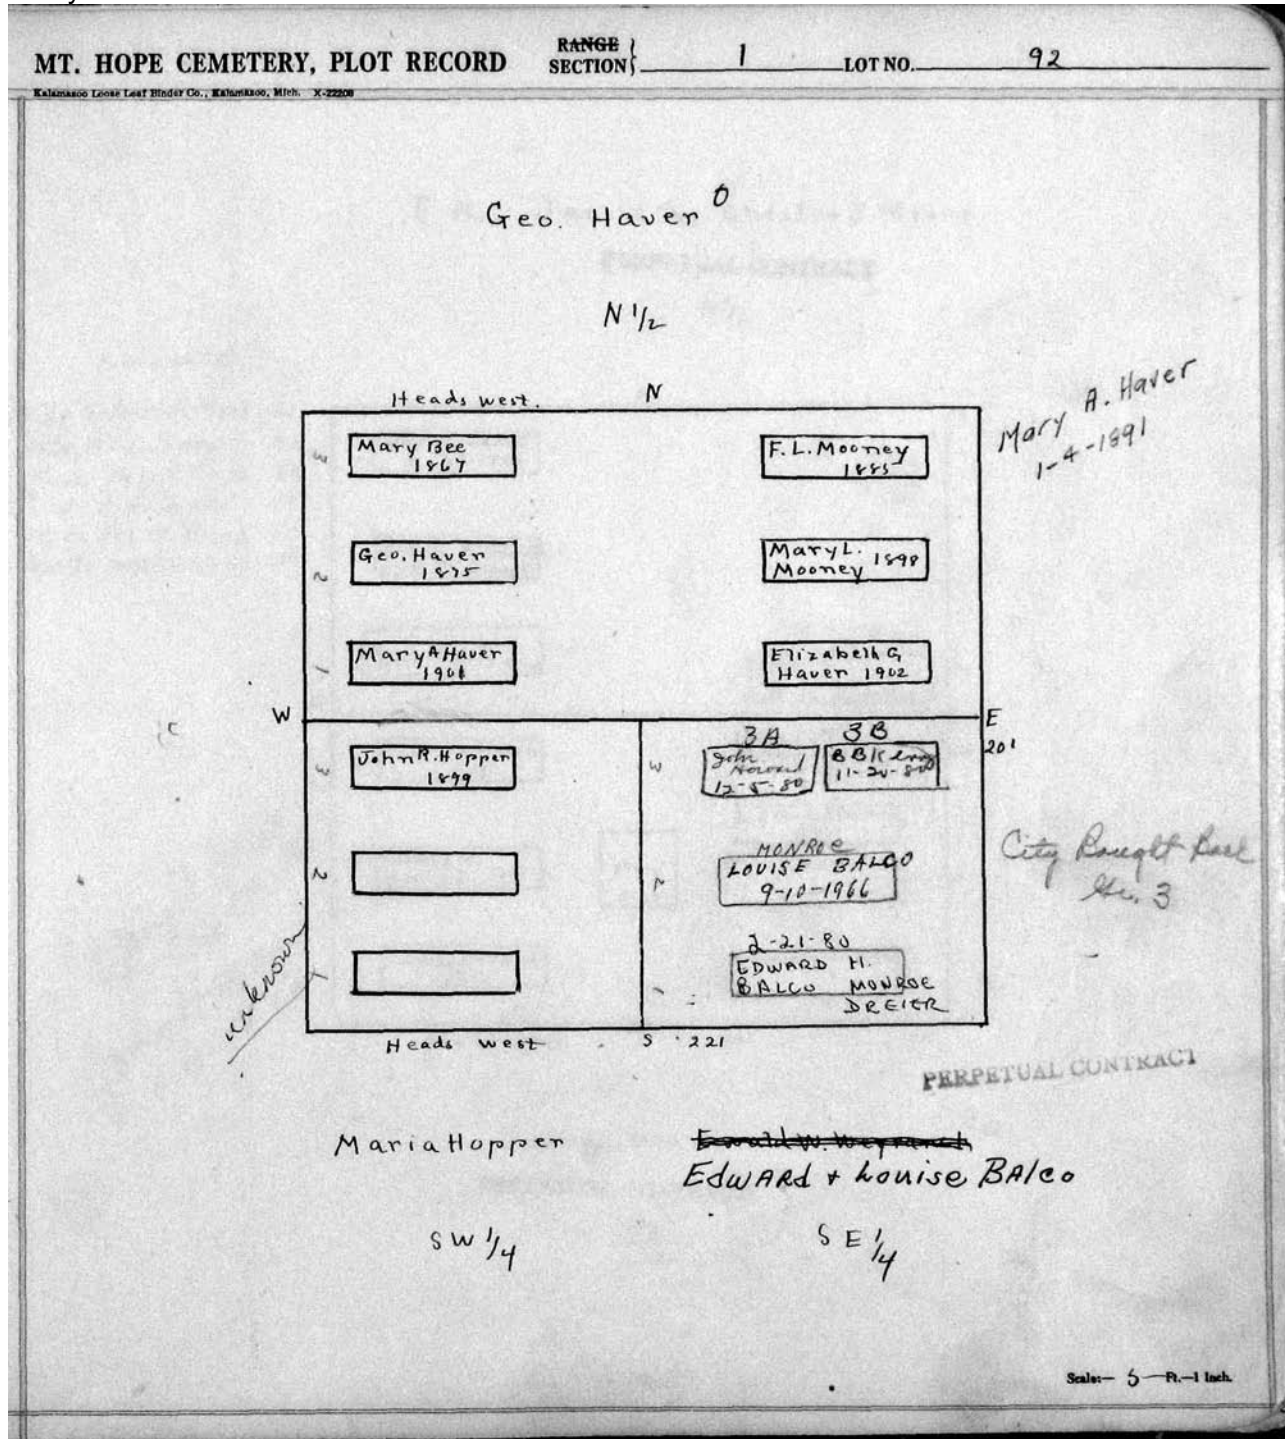 MT. HOPE CEMETERY, PLOT RECORD
RANGE
SECTION 1 LOT NO. 92
Kalamazoo Loose Leaf Binder Co., Kalamazoo, Mich. X-22208
Geo. Haver 0
N 1/2
Heads west. N
Mary A. Haver
1-4-1891
3 Mary Bee
1867
F. L. Mooney
1885
2 Geo. Haver
1875
Mary L. 1898
Mooney
1 Mary A Haver
1901
Elizabeth G
Haver 1902
W E
201
3 John R. Hopper
1899
3 3A 3B
John
Howard
12-5-80
B B
11-20-80
2
2 MONROE
LOUISE BALCO
9-10-1966
City Bought Back
Gr. 3
unknown
1
1 2-21-80
EDWARD H.
BALCO MONROE
DREIER
Heads west S 221
PERPETUAL CONTRACT
Maria Hopper
SW 1/4
EdWARd + Louise BAlco
S E 1/4
Scale:— 5 —Ft.—1 Inch.